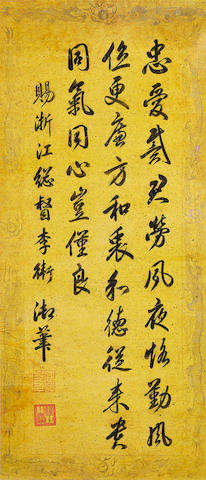 忠愛戴君勞夙夜恪勤
位更廉方和衷和德從来貴
同氣同心豈僅良
賜浙江総督李衛 御筆